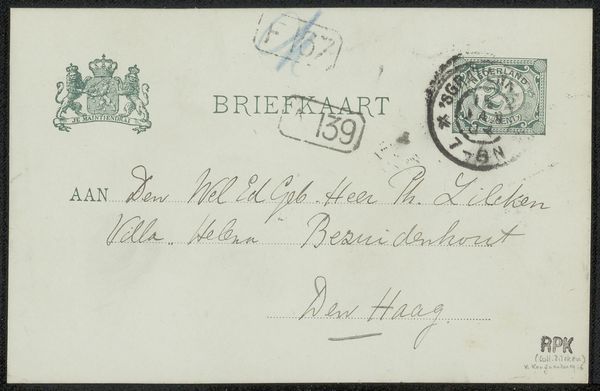 F 137
NEDERLAND
JE MAINTIENDRAI
BRIEFKAART
139
CENT
'SGR
JAN
7-8N
AAN Den Wel Ed Geb. Heer Ph. Zilcken
Villa „Helena" Bezuidenhout
Den Haag.
RPK
(Coll. Zilcken)